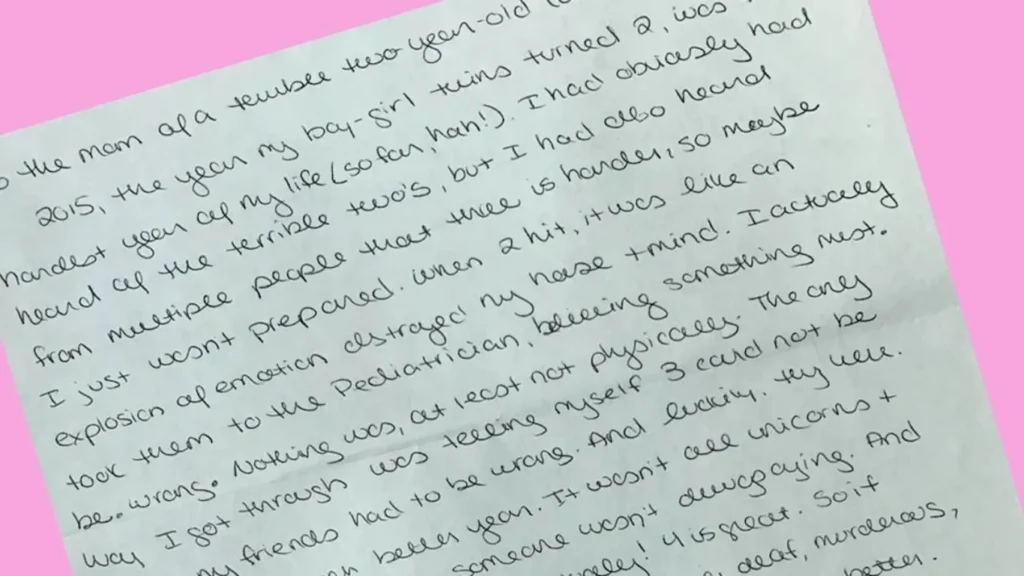 the mom of a terrible two year-old
2015, the year my boy-girl twins turned 2, was
hardest year of my life (so far, hah!). I had obviously had
heard of the terrible two's, but I had also heard
from multiple people that three is harder, so maybe
I just wasn't prepared. When 2 hit, it was like an
explosion of emotion destroyed my house + mind. I actually
took them to the Pediatrician, believing something must.
be. wrong. Nothing was, at least not physically. The only
way I got through was telling myself 3 could not be
my friends had to be wrong. And luckily. they were.
better year. It wasn't all unicorns +
someone wasn't And
4 is great. So if
deaf, murderous,
better.